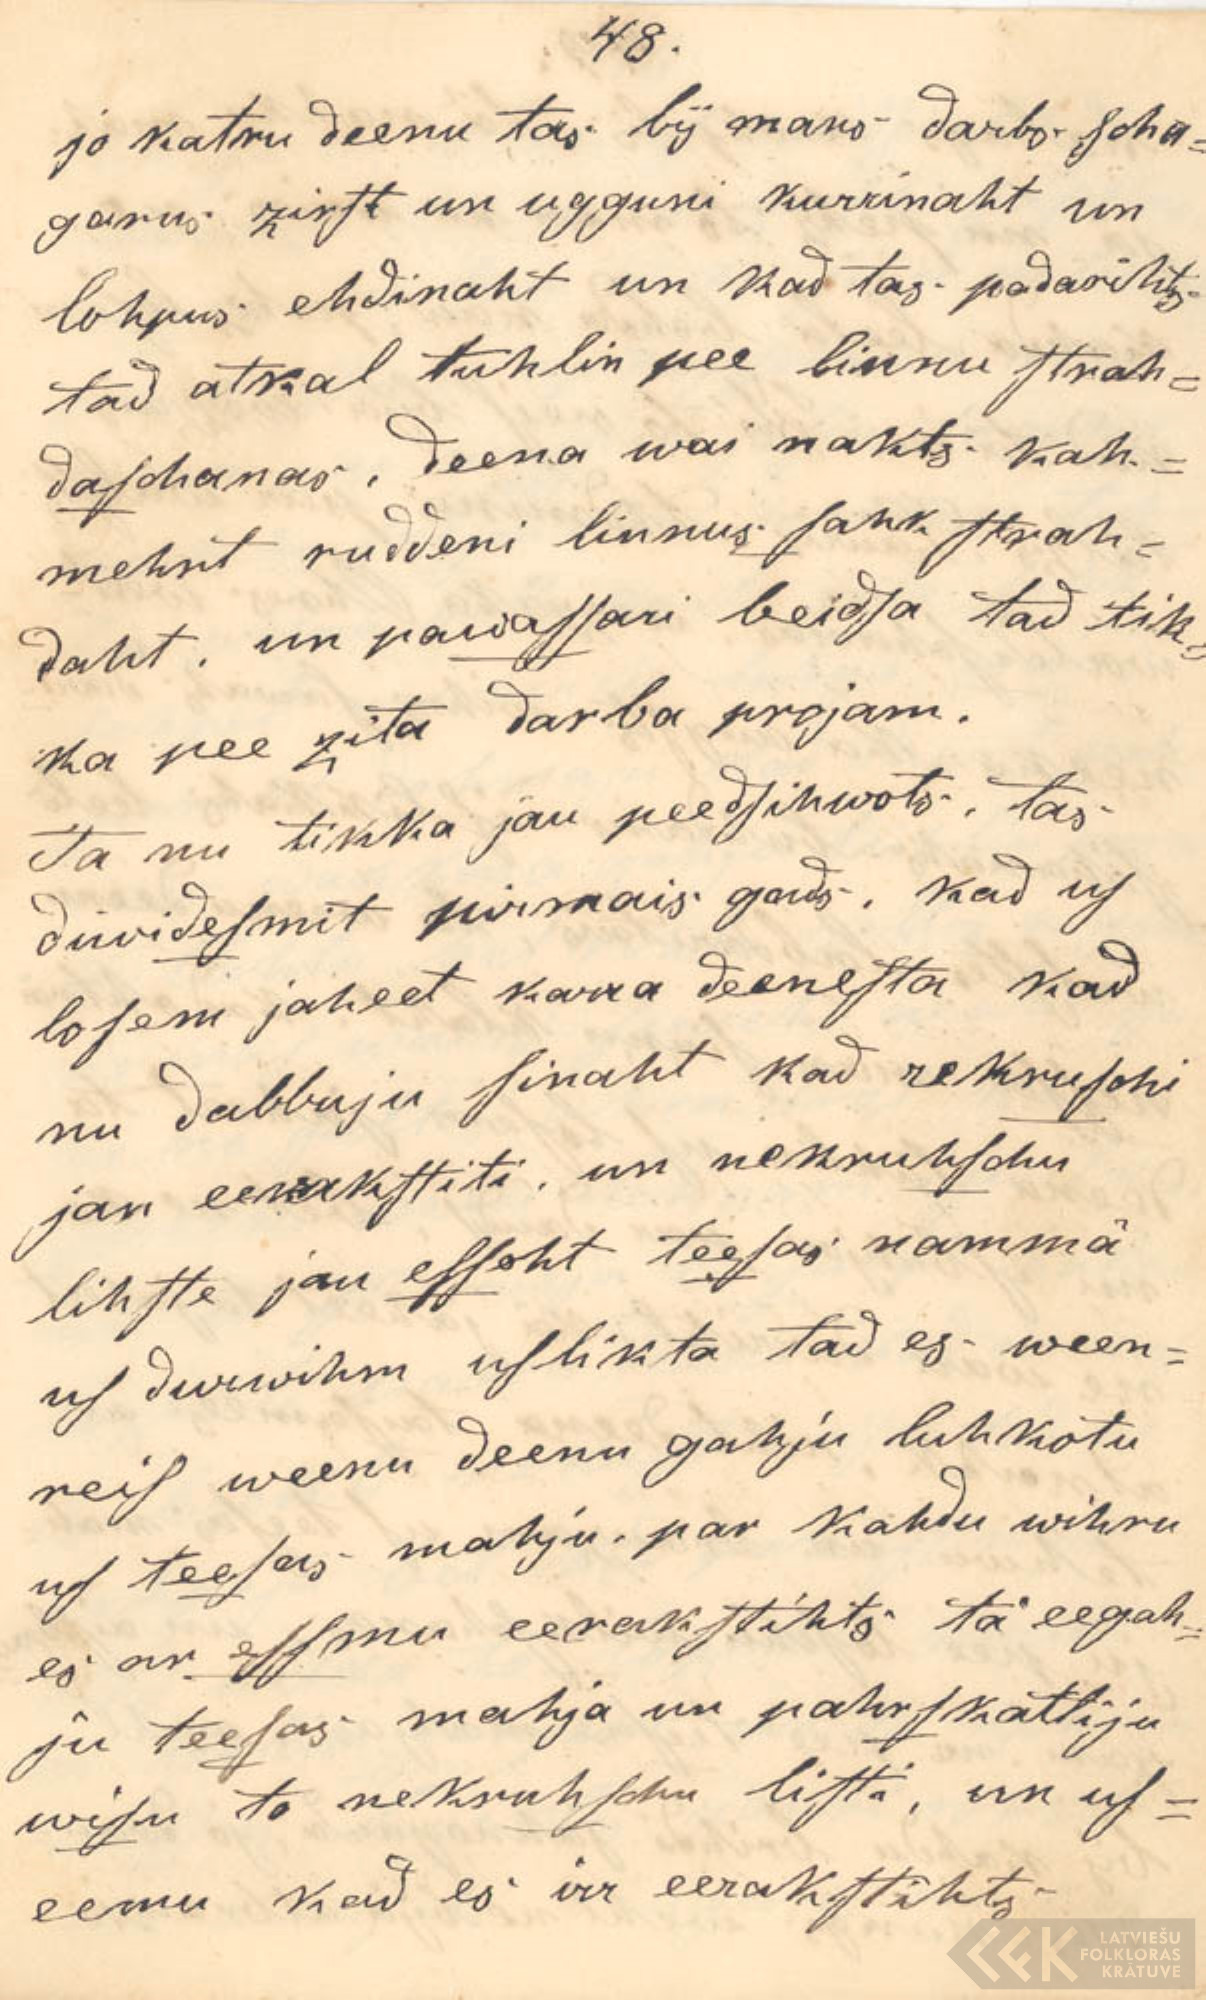 48.
jo katru deenu tas bij mans darbs scha=
garus zirst un ugguni kurrinaht un
lohpus ehdinaht un kad tas padarihts
tad atkal tuhlin pee linnu strah=
daschanas, deena wai nakts kah=
mehrt ruddeni linnus sahk strah=
daht, un pawassari beidsa tad tik=
ka pee zita darba projam.
Ta nu tikka jau peedsihwots, tas
diwidesmit pirmais gads, kad us
losem jaheet karra deenesta kad
nu dabbuju sinaht kad rekruschi
jau eerakstiti, un nekruhschu
lihste jau essoht teesas nammä
us durwihm uslikta tad es ween=
reis weenu deenu gahju luhkotu
us teesas mahju, par kahdu wihru
es ar essmu eerakstihts tä eegah=
ju teesas mahja un pahrskattiju
wisu to nekruhschu listi, un us=
eemu kad es irr eerakstihts
LATVIEŠU
FOLKLORAS
KRĀTUVE